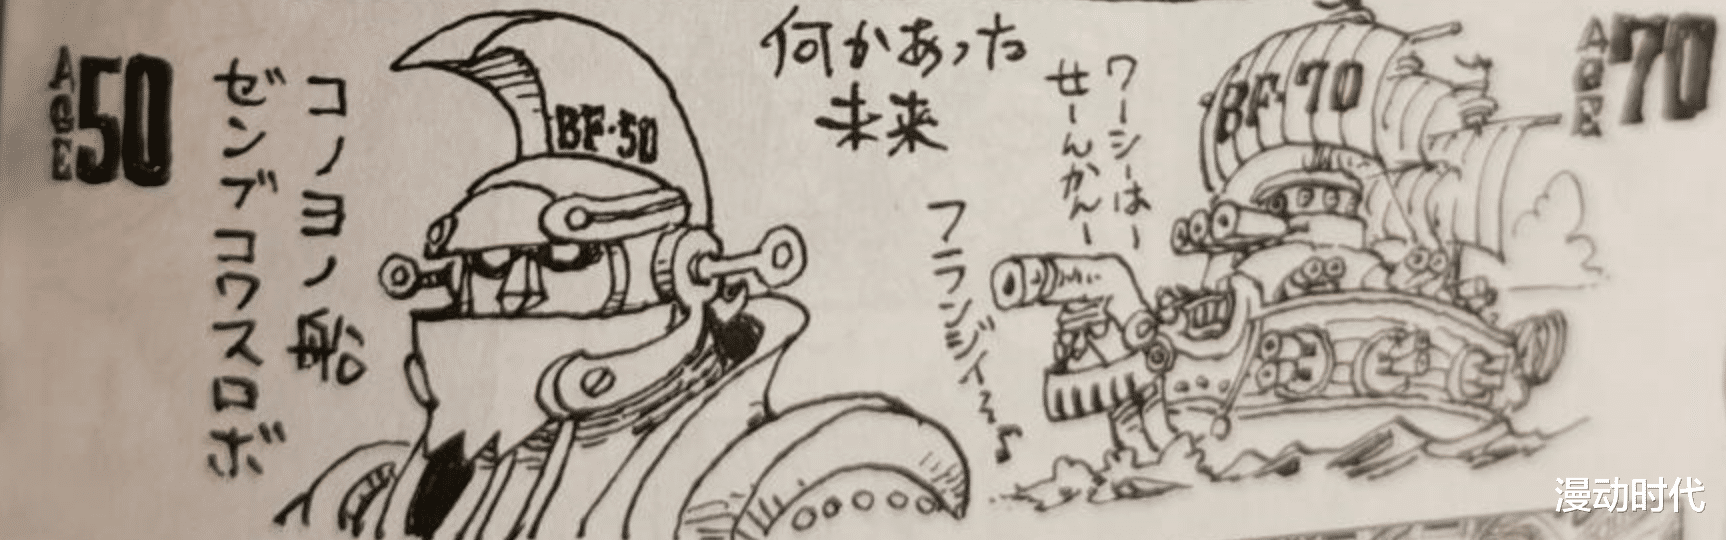 何かあった
未来
AGE 50
コノヨノ船
ゼンブコワスロボ
BF-50
AGE 70
BF-70
ワーシーはー
せーんかんー
フランジィ〜
漫动时代